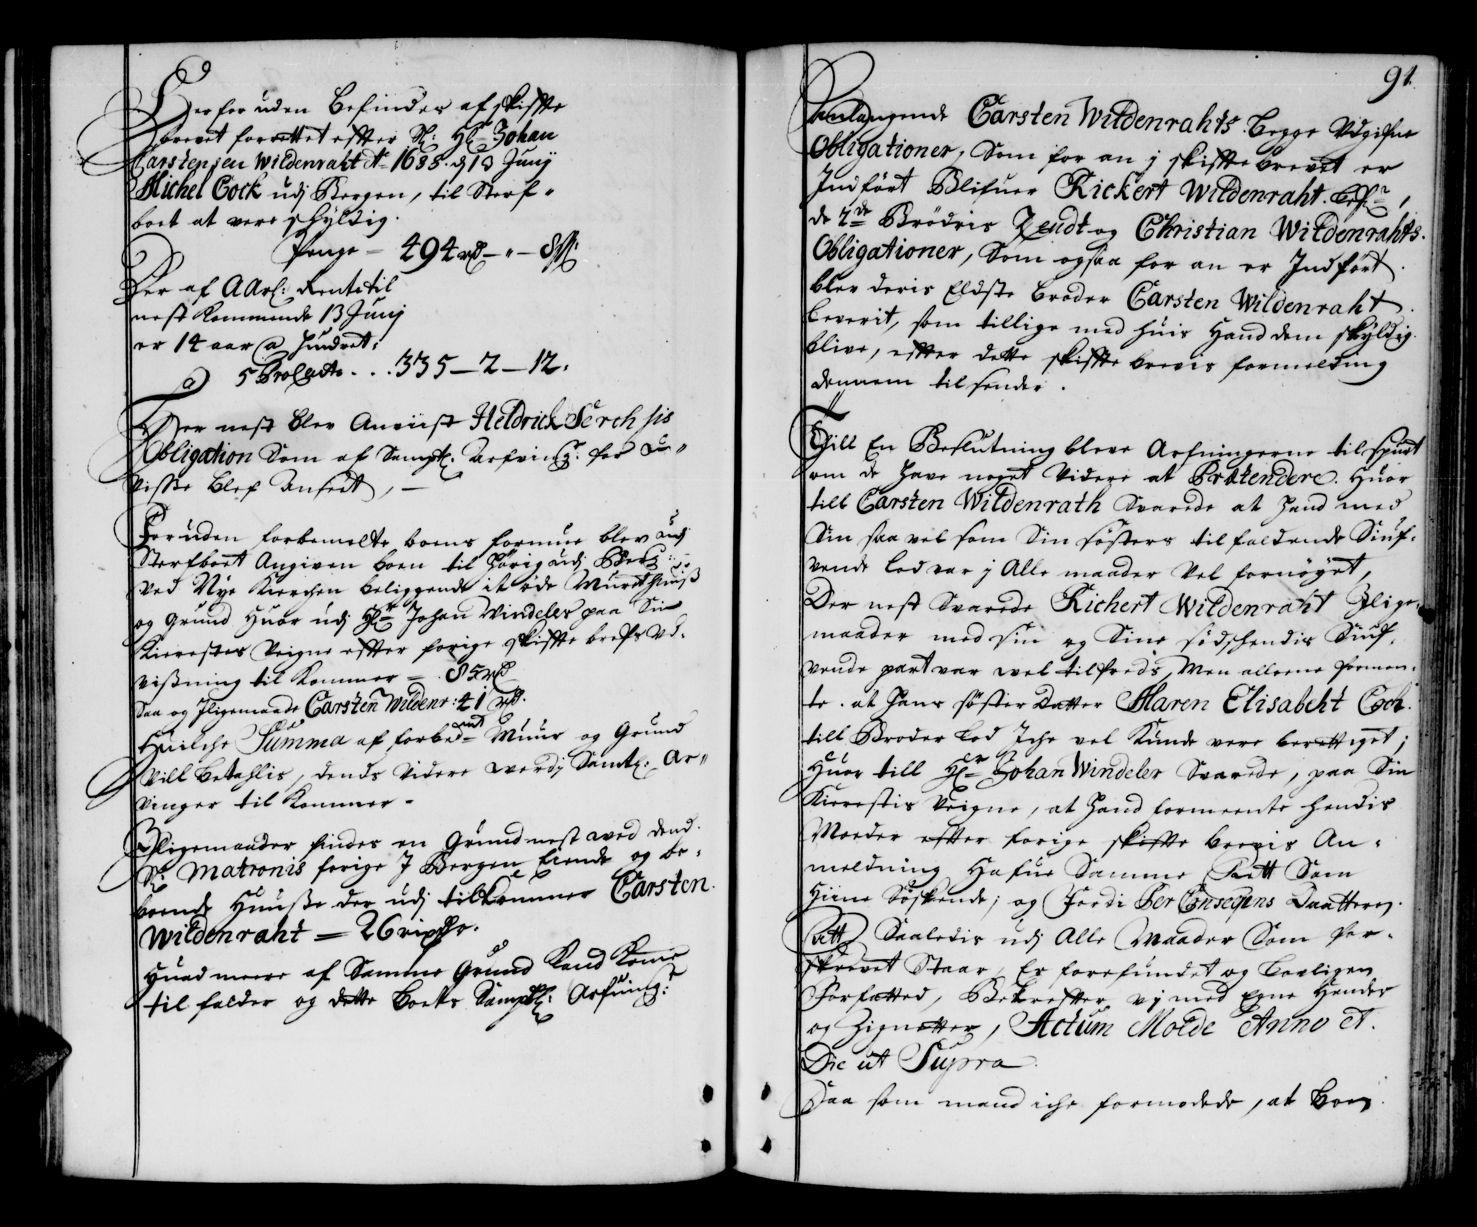 Herforuden befindes af skiffte
brevet forrettet effter Sl: Hr Johan
Carstensen Wildenraht Ao 1688 d 13 Junij
Michel Cock udj Bergen, til Sterf-
boet at vere skyldig.
Penge - 494 rd - " - 8 ß:
Der af Aarl: Rente til
nest kommende 13 Junij
er 14 aar a hundret:
a 5 Procto ... 335 - 2 - 12.
Der nest blev Anviist Heldrick Serch sis
Obligation som af Sampt: arfving: for U-
visse blef ansedt, -
Foruden forbemelte boens formue blev udj
Sterfboet Angiven boen til hörig udj Berg:
ved Nye Kierchen beliggende it øde Muret Huuß
og Grund Huor udj Hr Johan Windeler paa Sin
Kierestes Veigne effter forige skiffte brefs ud-
visning til kommer - 85 rd
Saa og Jligemaade Carsten Wildenr: 41 rd.
Huilche Summa af forbe- Muur og Grund
vill betahlis, dends videre værdj Samtl: Ar-
vinger til kommer -
Jligemaader findes en Grund nest wed dend
Sl Matronis forige J Bergen Eiende og be-
boende Huuße der udj tilkommer Carsten
Wildenraht = 26 rixdlr.
Huad meere af Samme Grund kand kome
til falder og dette boets Samptl: Arfuing:
91
Anlangende Carsten Wildenrahts begge Udgifne
Obligationer, Som for an j skiffte brevet er
Indført Blifuer Rickert Wildenraht
de 2de Brödris Zendt og Christian Wildenrahts
Obligationer, Som ogsaa for an er Indført
blev deris Eldste broder Carsten Wildenraht
leverit, som tillige med huis Hand dem skyldig
blive, effter dette skiffte brevis formelding
dennem tilsender.
Till En Beslutning bleve Arfvingerne tilspurt
om de have noget videre at Prætendere. Huor
till Carsten Wildenrath Svarede at Hand med
Sin saa vel som Sin söster til faldende Siuf-
vende lod var j Alle maader vel fornöyet,
Der nest Svarede Richert Wildenraht Jlige-
maader med sin og Sine södschendis Siuf-
vende part var vel tilfreds, Men alleene formen-
te at Hans söster Datter Maren Elisabeht Cock
till Broder lod Jche vel Kunde vere berettiget;
Huor till Hr Johan Windeler Svarede, paa Sin
Kierestis Veigne, at Hand formeente hendis
Moeder effter forige skiffte brevis An-
meldning Hafue Samme Rett Som
Hiine Söskende, og Jerdi Per Conseqens Daatteren
att Saaledis udj Alle Maader Som for-
skrevet Staar, Er forefundet og bevligen
Forfatted, Bekreffter vj med Egne Hender
og Zignetter, Actum Molde Anno et
Die ut Supra.
Saa som mand iche formodede, at boen